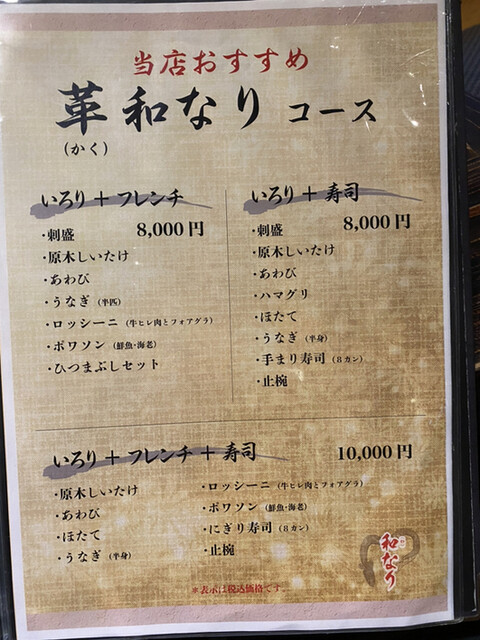 当店おすすめ
革和なり コース
(かく)
いろり+フレンチ
8,000円
・刺盛
・原木しいたけ
・あわび
・うなぎ(半匹)
・ロッシーニ(牛ヒレ肉とフォアグラ)
・ポワソン(鮮魚・海老)
・ひつまぶしセット
いろり+寿司
8,000円
・刺盛
・原木しいたけ
・あわび
・ハマグリ
・ほたて
・うなぎ(半身)
・手まり寿司(8カン)
・止椀
いろり+フレンチ+寿司
10,000円
・原木しいたけ
・あわび
・ほたて
・うなぎ(半身)
・ロッシーニ(牛ヒレ肉とフォアグラ)
・ポワソン(鮮魚・海老)
・にぎり寿司(8カン)
・止椀
和なり
※表示は税込価格です。